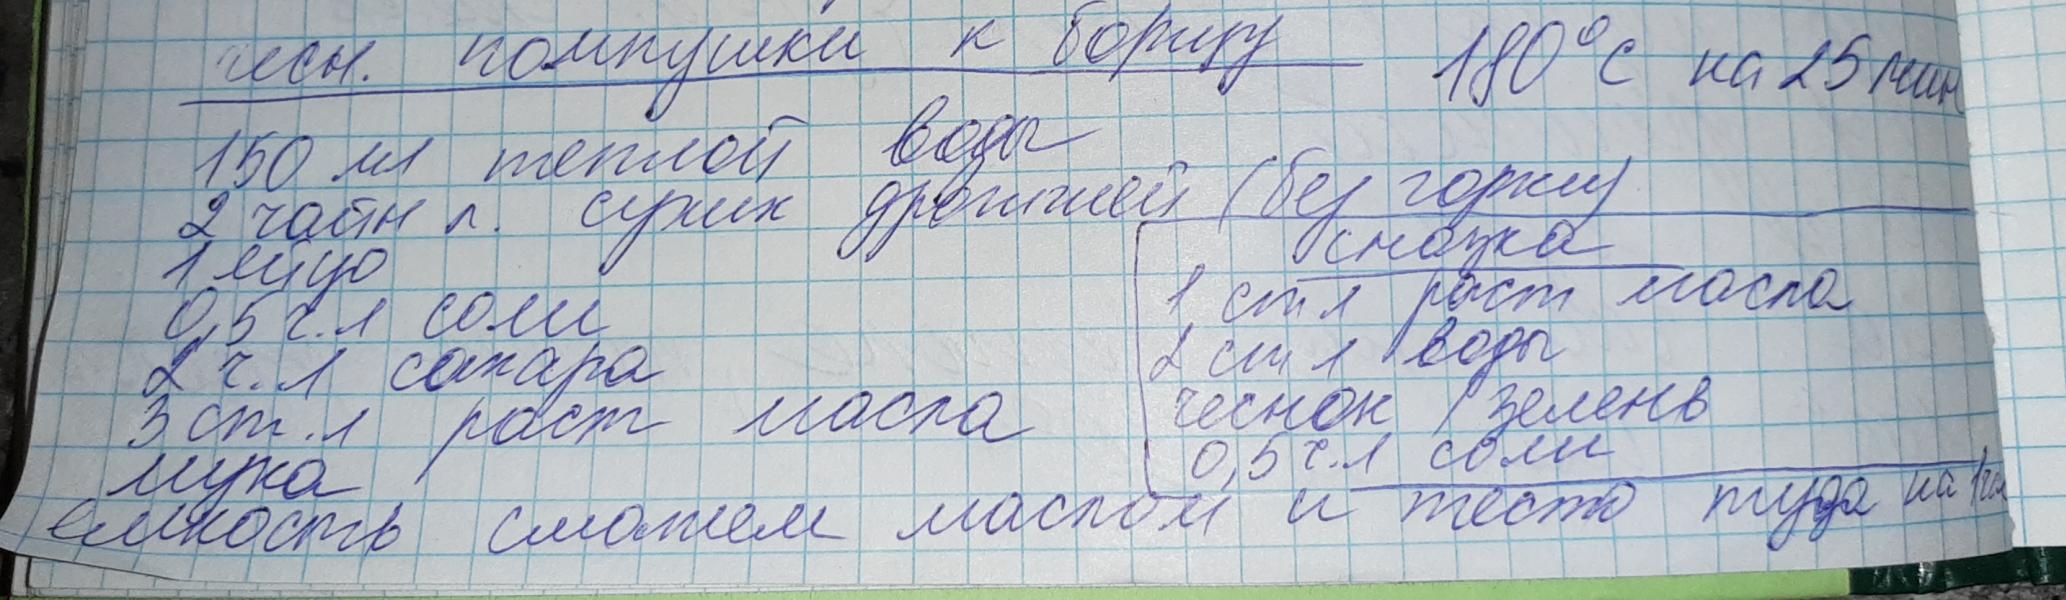 чесн. помпушки к борщу
180°С на 25 мин
150 мл теплой воды
2 чайн л. сухих дрожжей (без горки)
1 яйцо
0,5 ч.л соли
2 ч.л сахара
3 ст.л раст масла
мука
смазка
1 ст л раст масла
2 ст л воды
чеснок / зелень
0,5 ч.л соли
емкость смажем маслом и тесто туда на 1 час